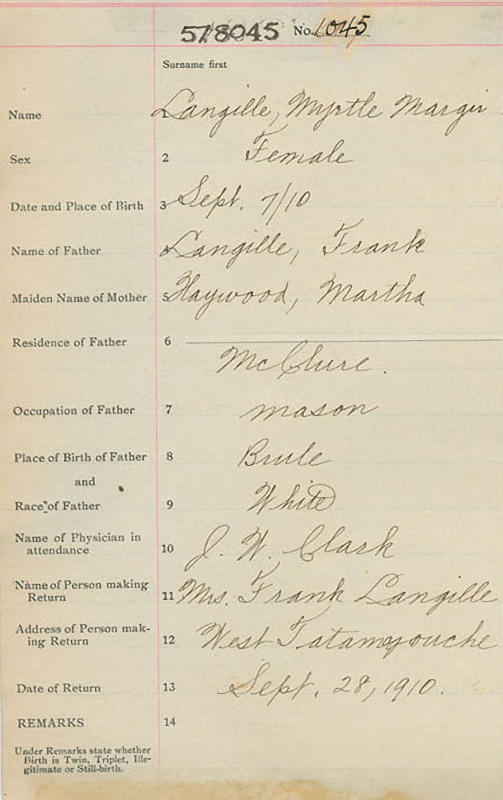 578045 No. 1045
Surname first
Name Langille, Myrtle Margir
Sex 2 Female
Date and Place of Birth 3 Sept. 7/10
Name of Father Langille, Frank
Maiden Name of Mother 5 Haywood, Martha
Residence of Father 6
McClure.
Occupation of Father 7 mason
Place of Birth of Father 8 Brule
and
Race of Father 9 White
Name of Physician in
attendance 10 J. W. Clark
Name of Person making
Return 11 Mrs. Frank Langille
Address of Person mak-
ing Return 12 West Tatamagouche
Date of Return 13 Sept. 28, 1910.
REMARKS 14
Under Remarks state whether
Birth is Twin, Triplet, Ille-
gitimate or Still-birth.